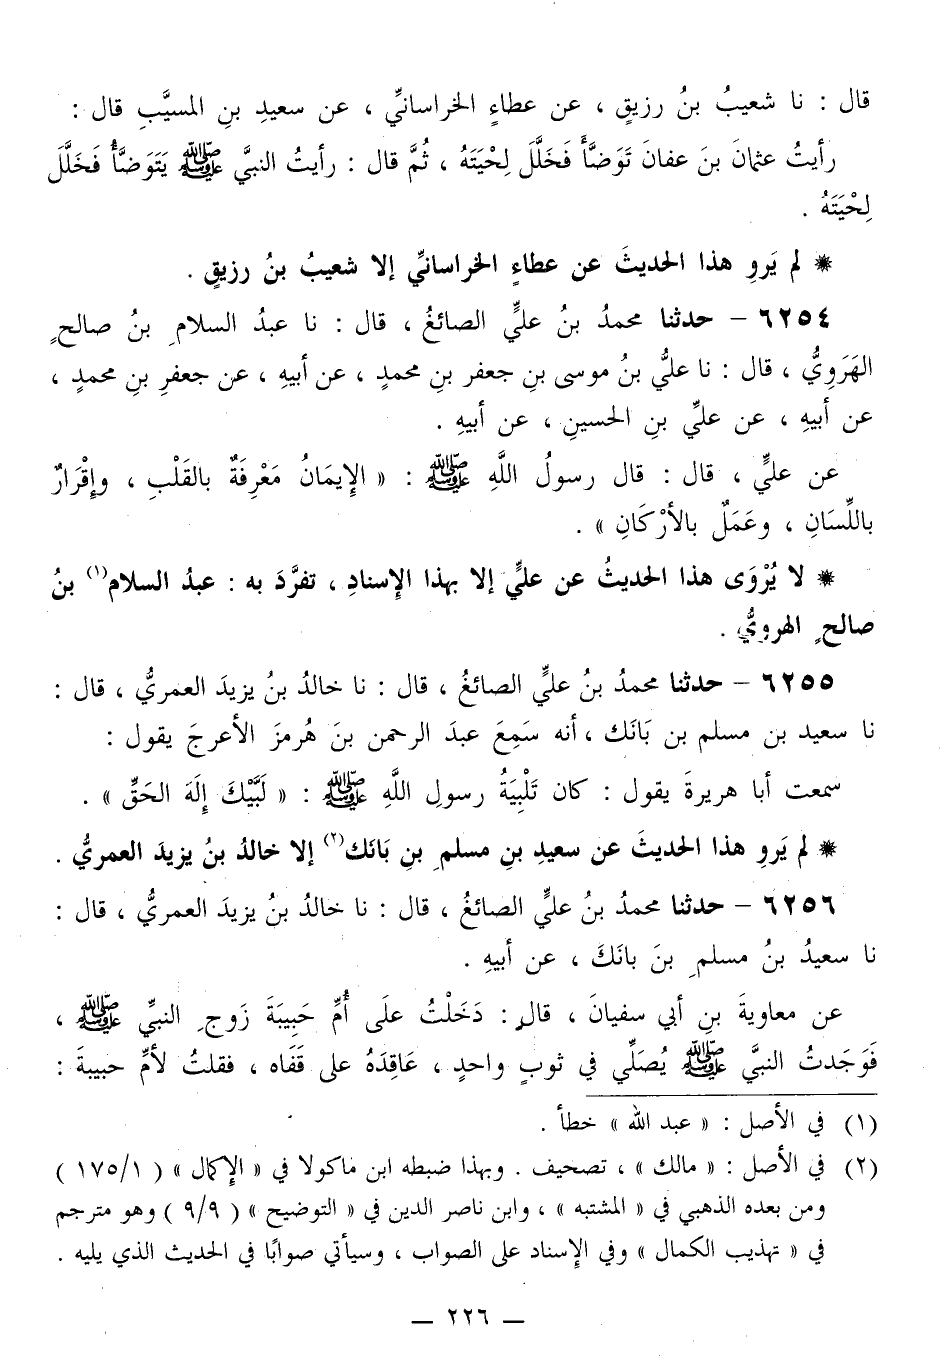 قال : نا شعيبُ بنُ رزيقٍ ، عن عطاءٍ الخراسانيِّ ، عن سعيدِ بنِ المسيَّبِ قال :
رأيتُ عثمانَ بنَ عفانَ تَوَضَّأَ فَخَلَّلَ لِحْيَتَهُ ، ثُمَّ قال : رأيتُ النبيَّ ﷺ يَتَوَضَّأُ فَخَلَّلَ
لِحْيَتَهُ .
* لم يَروِ هذا الحديثَ عن عطاءٍ الخراسانيِّ إلا شعيبُ بنُ رزيقٍ .
٦٢٥٤ – حدثنا محمدُ بنُ عليٍّ الصائغُ ، قال : نا عبدُ السلامِ بنُ صالحٍ
الهَرَوِيُّ ، قال : نا عليُّ بنُ موسى بنِ جعفرِ بنِ محمدٍ ، عن أبيهِ ، عن جعفرِ بنِ محمدٍ ،
عن أبيهِ ، عن عليِّ بنِ الحسينِ ، عن أبيهِ .
عن عليٍّ ، قال : قال رسولُ اللَّهِ ﷺ : « الإيمَانُ مَعْرِفَةٌ بالقَلْبِ ، وإقْرَارٌ
باللِّسَانِ ، وعَمَلٌ بالأرْكَانِ » .
* لا يُرْوَى هذا الحديثُ عن عليٍّ إلا بهذا الإسنادِ ، تفرَّدَ به : عبدُ السلام(١) بنُ
صالحٍ الهرويُّ .
٦٢٥٥ – حدثنا محمدُ بنُ عليٍّ الصائغُ ، قال : نا خالدُ بنُ يزيدَ العمريُّ ، قال :
نا سعيد بن مسلم بن بَانَك ، أنه سَمِعَ عبدَ الرحمن بنَ هُرمزَ الأعرجَ يقول :
سمعت أبا هريرةَ يقول : كان تَلْبِيَةُ رسولِ اللَّهِ ﷺ : « لَبَّيْكَ إِلَهَ الحَقِّ » .
* لم يَروِ هذا الحديثَ عن سعيدِ بنِ مسلمِ بنِ بَانَك(٢) إلا خالدُ بنُ يزيدَ العمريُّ .
٦٢٥٦ – حدثنا محمدُ بنُ عليٍّ الصائغُ ، قال : نا خالدُ بنُ يزيدَ العمريُّ ، قال :
نا سعيدُ بنُ مسلمِ بنَ بانَكَ ، عن أبيهِ .
عن معاويةَ بنِ أبي سفيانَ ، قال : دَخَلْتُ علَى أُمِّ حَبِيبَةَ زَوجِ النبيِّ ﷺ ،
فَوَجَدتُ النبيَّ ﷺ يُصَلِّي في ثوبٍ واحدٍ ، عَاقِدَهُ على قَفَاه ، فقلتُ لأمِّ حبيبةَ :
(١) في الأصل : « عبد الله » خطأ .
(٢) في الأصل : « مالك » ، تصحيف . وبهذا ضبطه ابن ماكولا في « الإكمال » ( ١/١٧٥ )
ومن بعده الذهبي في « المشتبه » ، وابن ناصر الدين في « التوضيح » ( ٩/٩ ) وهو مترجم
في « تهذيب الكمال » وفي الإسناد على الصواب ، وسيأتي صوابًا في الحديث الذي يليه .
— ٢٢٦ —